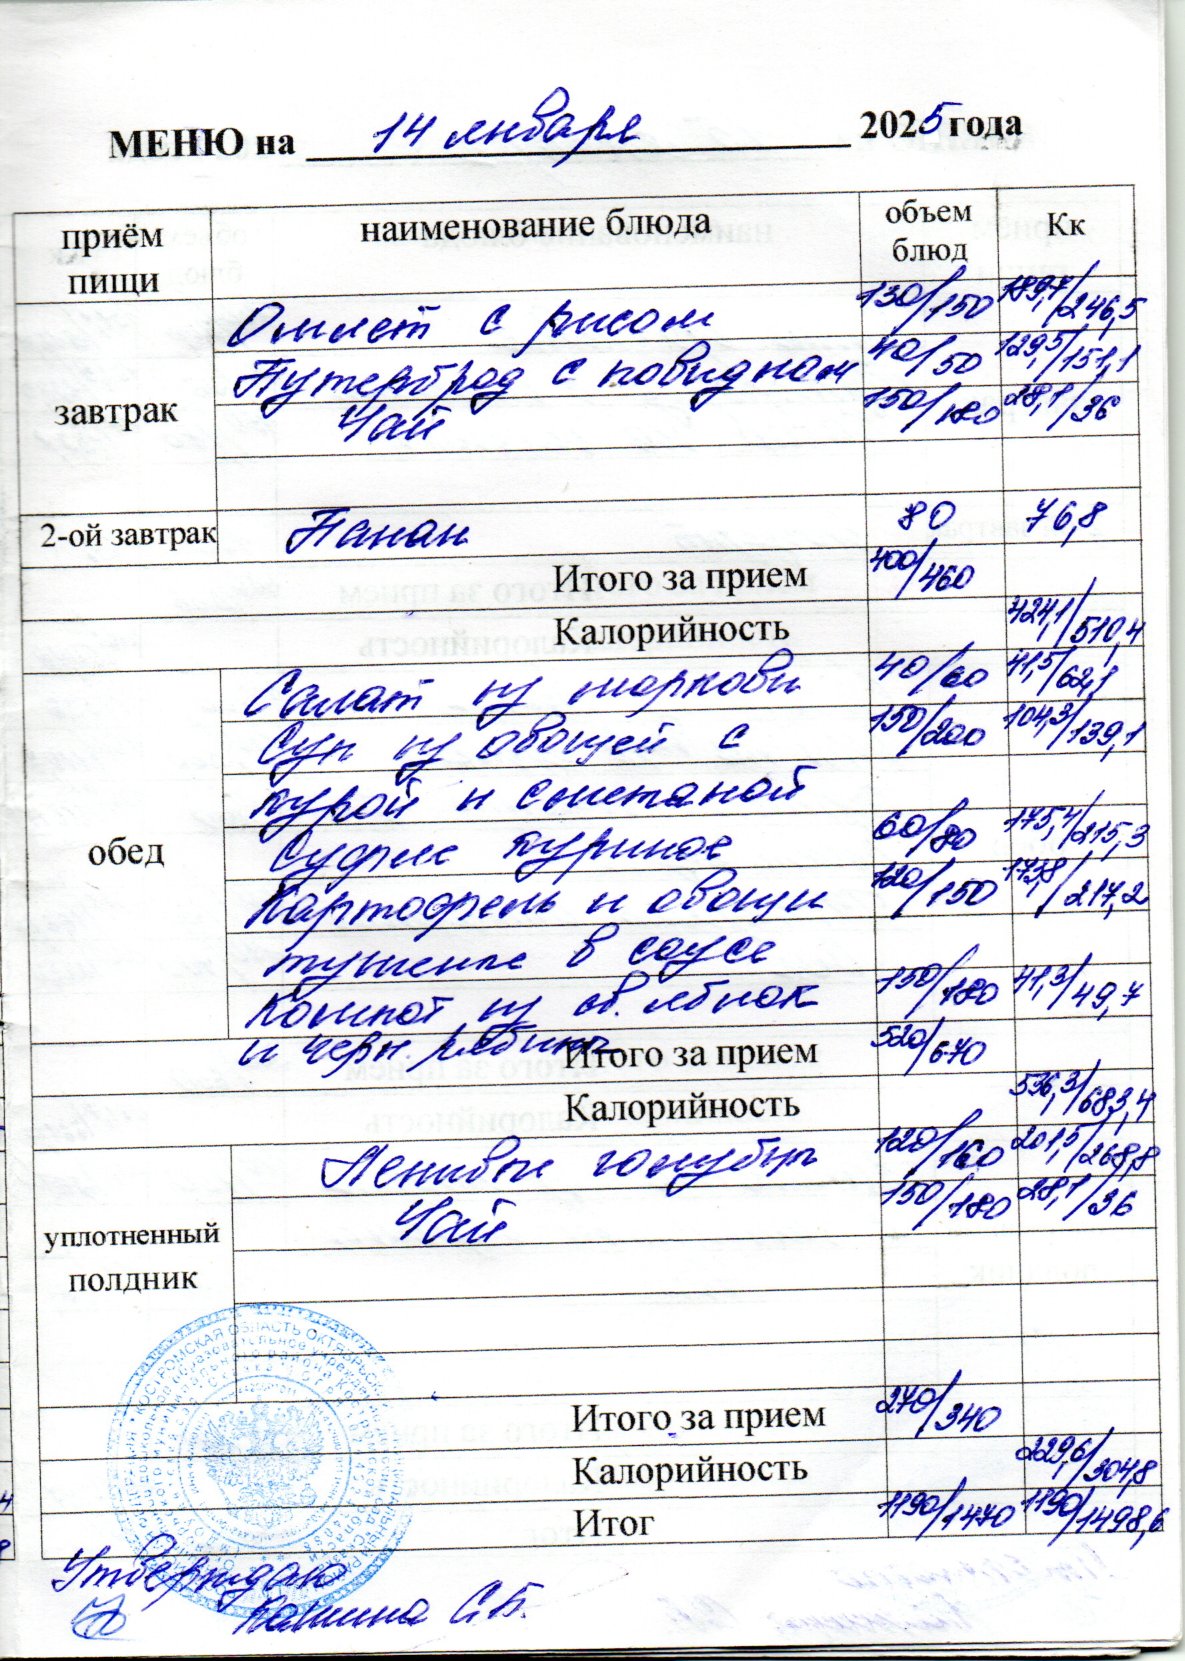 МЕНЮ на 14 января 2025 года
приём пищи наименование блюда объем блюд Кк
завтрак
Омлет с рисом 130/150 189,7/246,5
Бутерброд с повидлом 40/50 129,5/151,1
Чай 150/180 28,1/36
2-ой завтрак Банан 80 76,8
Итого за прием 400/460
Калорийность 424,1/510,4
обед
Салат из моркови 40/60 41,5/62,1
Суп из овощей с 150/200 104,3/139,1
курой и сметаной
Суфле куриное 60/80 175,4/215,3
Картофель и овощи 120/150 173,8/217,2
тушеные в соусе
Компот из св. яблок 150/180 41,3/49,7
и черн. рябины
Итого за прием 520/670
Калорийность 536,3/683,4
уплотненный полдник
Ленивые голубцы 120/160 201,5/268,8
Чай 150/180 28,1/36
Итого за прием 270/340
Калорийность 229,6/304,8
Итог 1190/1470 1190/1498,6
Утверждаю
С.Б.